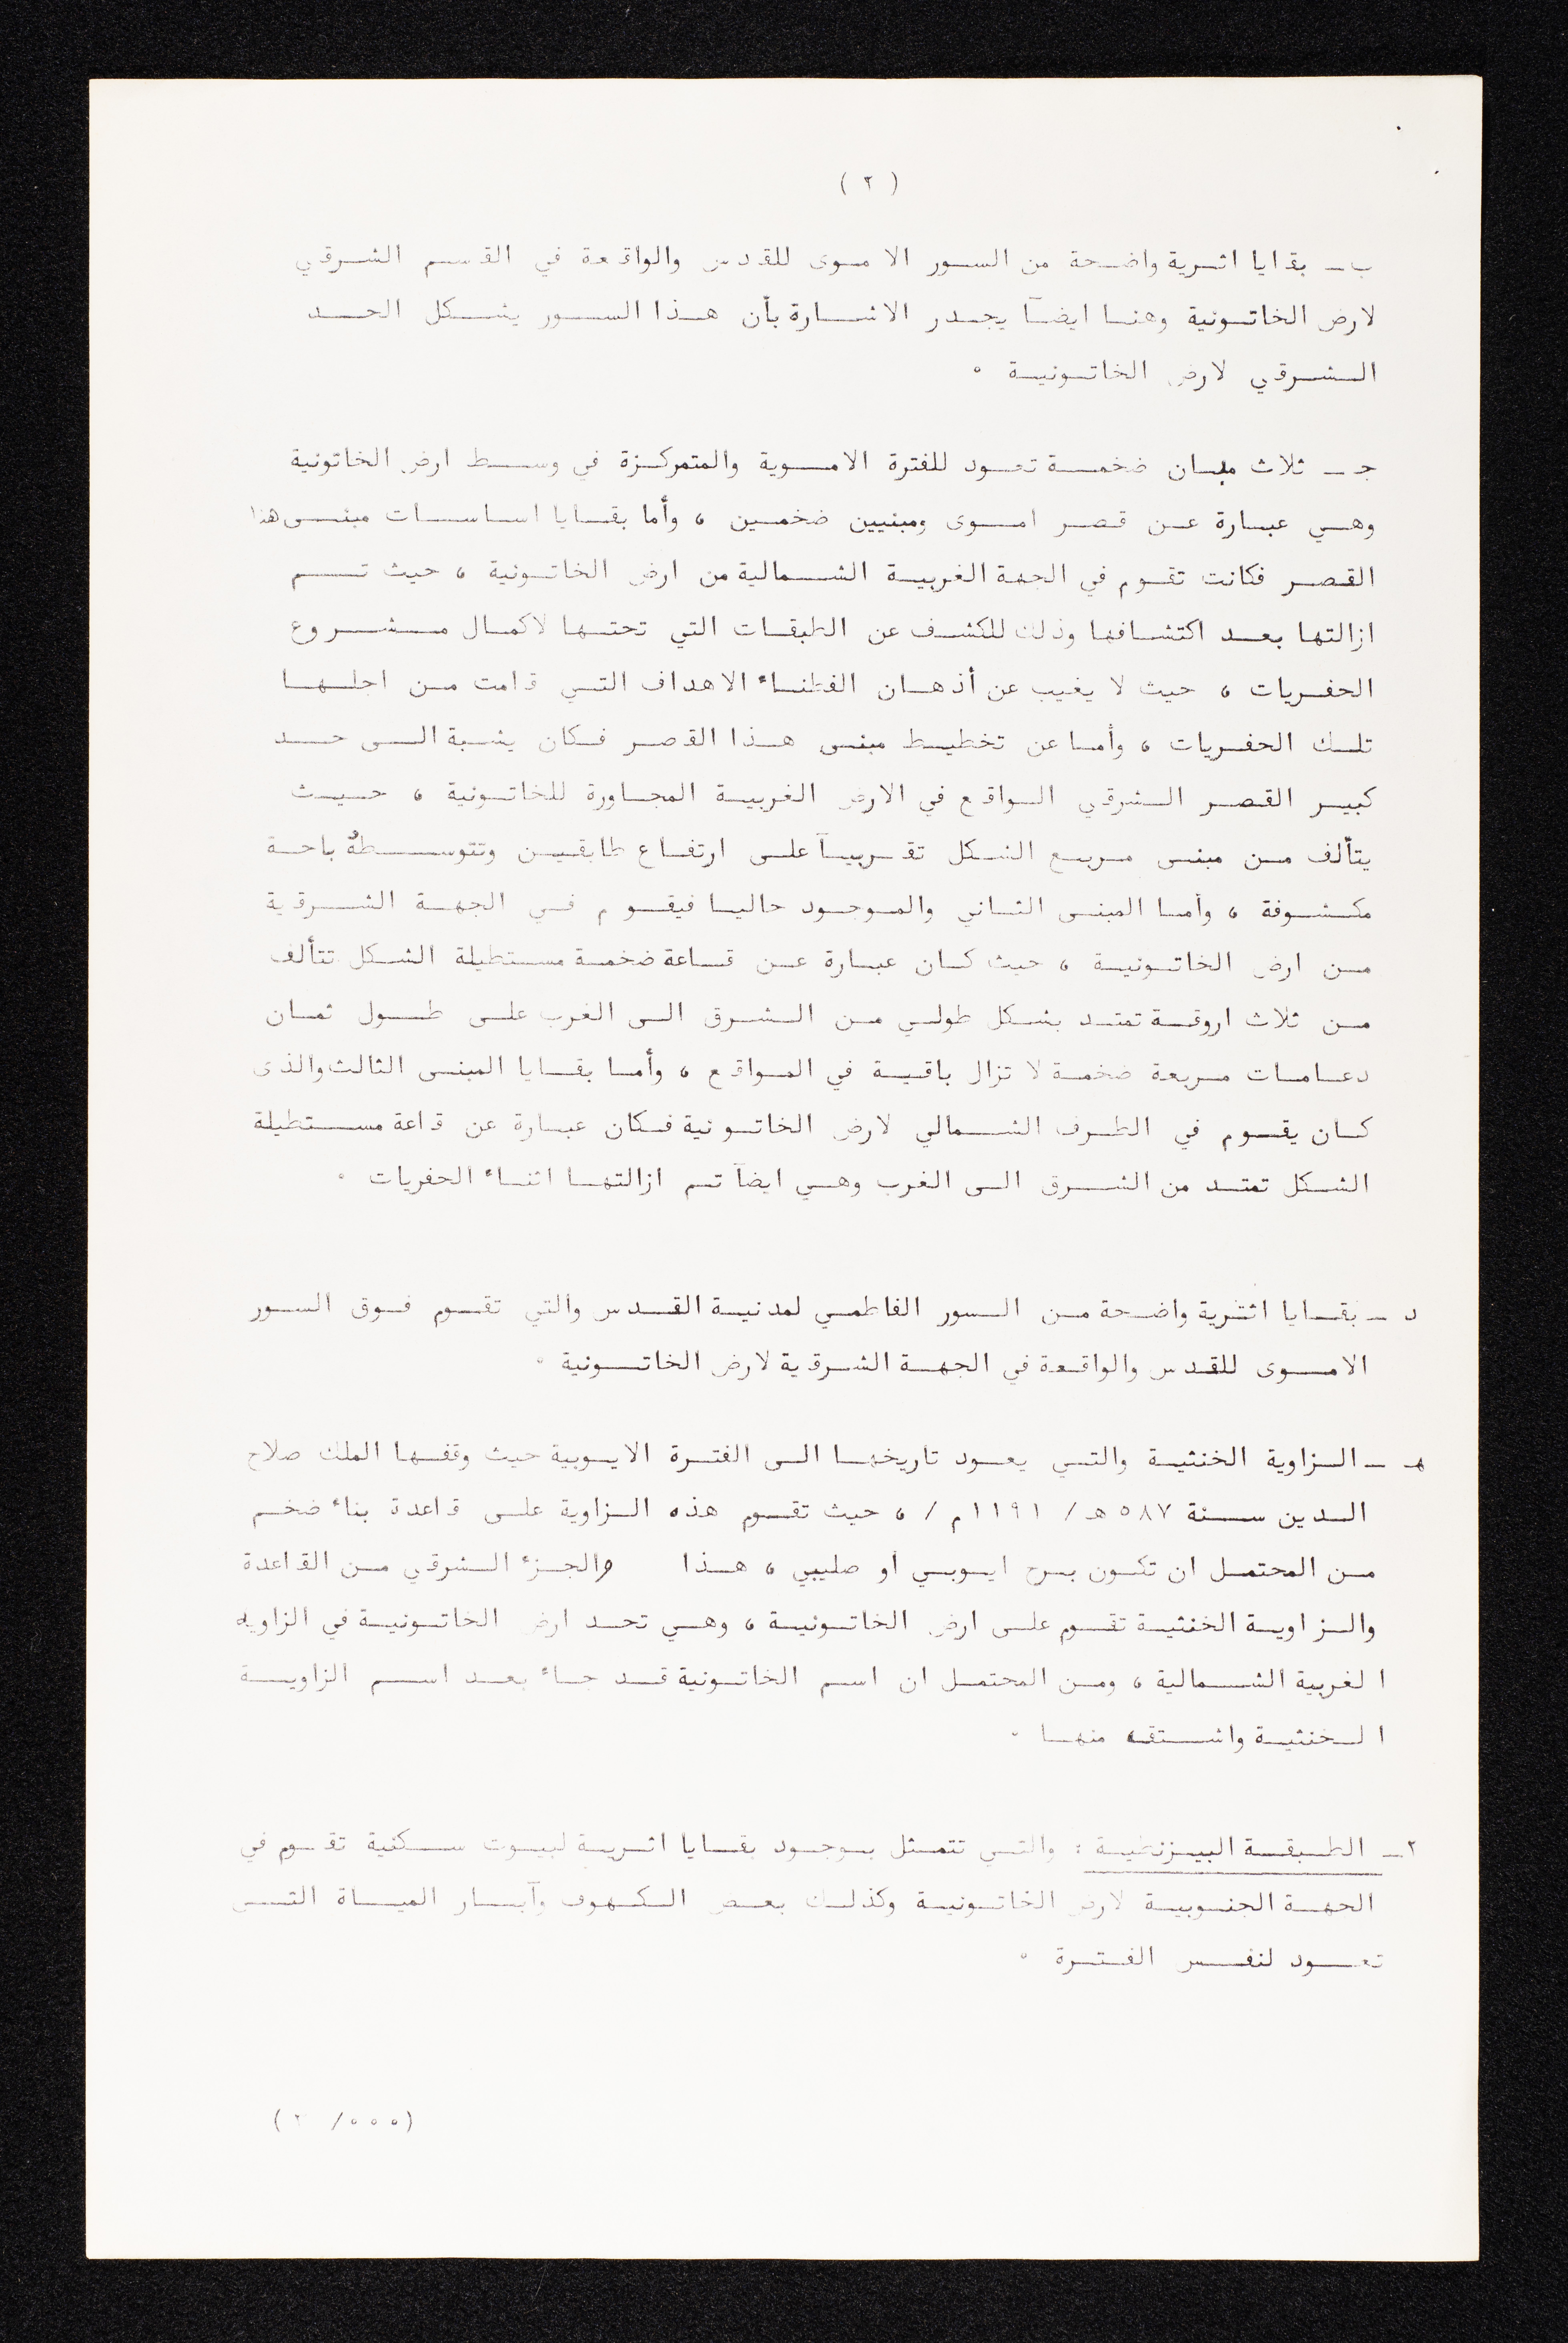 ( ٢ )
ب ـ بقايا اثرية واضحة من السور الاموى للقدس والواقعة في القسم الشرقي
لارض الخاتونية وهنا ايضآ يجدر الاشارة بأن هذا السور يشكل الحد
الشرقي لارض الخاتونية ٠
جـ ـ ثلاث مبان ضخمة تعود للفترة الاموية والمتمركزة في وسط ارض الخاتونية
وهي عبارة عن قصر اموى ومبنيين ضخمين ، وأما بقايا اساسات مبنى هذا
القصر فكانت تقوم في الجهة الغربية الشمالية من ارض الخاتونية ، حيث تم
ازالتها بعد اكتشافها وذلك للكشف عن الطبقات التي تحتها لاكمال مشروع
الحفريات ، حيث لا يغيب عن أذهان الفطناء الاهداف التي قامت من اجلها
تلك الحفريات ، وأما عن تخطيط مبنى هذا القصر فكان يشبة الى حد
كبير القصر الشرقي الواقع في الارض الغربية المجاورة للخاتونية ، حيث
يتألف من مبنى مربع الشكل تقريبآ على ارتفاع طابقين وتتوسطة باحة
مكشوفة ، وأما المبنى الثاني والموجود حاليا فيقوم في الجهة الشرقية
من ارض الخاتونية ، حيث كان عبارة عن قاعة ضخمة مستطيلة الشكل تتألف
من ثلاث اروقة تمتد بشكل طولي من الشرق الى الغرب على طول ثمان
دعامات مربعة ضخمة لا تزال باقية في المواقع ، وأما بقايا المبنى الثالث والذى
كان يقوم في الطرف الشمالي لارض الخاتونية فكان عبارة عن قاعة مستطيلة
الشكل تمتد من الشرق الى الغرب وهي ايضآ تم ازالتها اثناء الحفريات ٠
د ـ بقايا اثرية واضحة من السور الفاطمي لمدنية القدس والتي تقوم فوق السور
الاموى للقدس والواقعة في الجهة الشرقية لارض الخاتونية ٠
هـ ـ الزاوية الخنثية والتي يعود تاريخها الى الفترة الايوبية حيث وقفها الملك صلاح
الدين سنة ٥٨٧ هـ / ١١٩١ م / ، حيث تقوم هذه الزاوية على قاعدة بناء ضخم
من المحتمل ان تكون برج ايوبي أو صليبي ، هذا والجزء الشرقي من القاعدة
والزاوية الخنثية تقوم على ارض الخاتونية ، وهي تحد ارض الخاتونية في الزاويه
الغربية الشمالية ، ومن المحتمل ان اسم الخاتونية قد جاء بعد اسم الزاوية
الخنثية واشتقه منها ٠
٢ـ الطبقة البيزنطية : والتي تتمثل بوجود بقايا اثرية لبيوت سكنية تقوم في
الجهة الجنوبية لارض الخاتونية وكذلك بعض الكهوف وآبار المياة التي
تعود لنفس الفترة ٠
(٠٠٠/ )